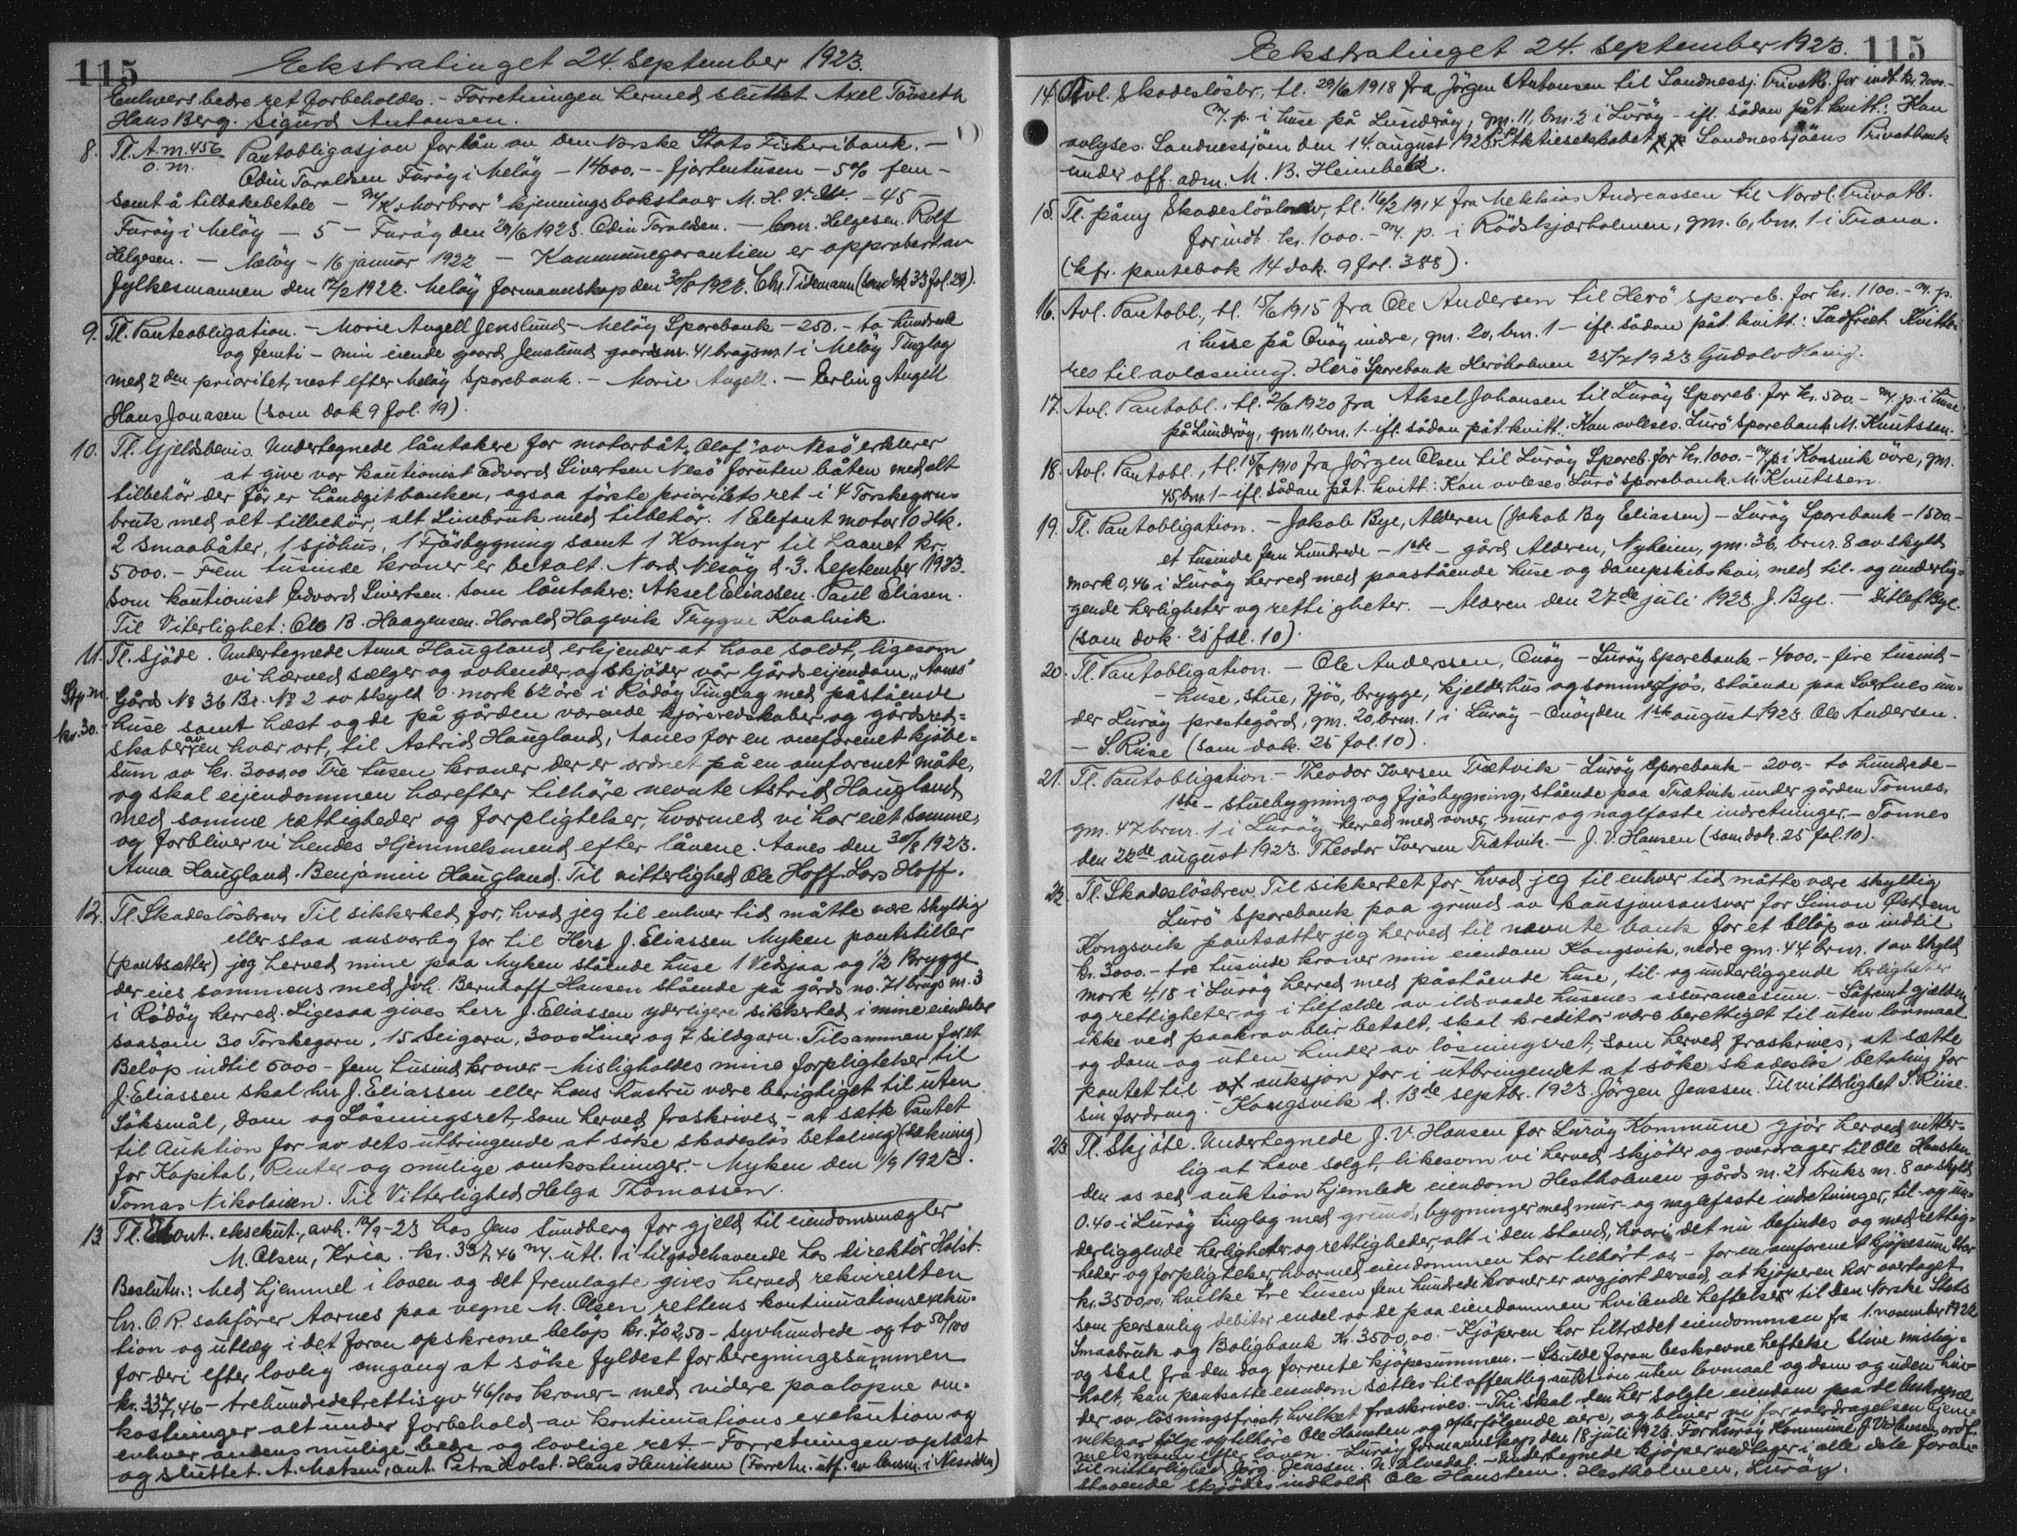 115 Ekstratinget 24. september 1923.
Enhvers bedre ret forbeholdes. - Forretningen hermed sluttet Axel Töiseth
Hans Berg. Sigurd Antonsen.
8. Tl. A.m. 456 Pantobligasjon for lån av Den Norske Stats Fiskeribank. -
o.m. Odin Toraldsen Furöy i Melöy - 14000. - - fjortentusen - 5% fem -
samt å tilbakebetale - "Morbror" kjenningsbokstaver M. H. V. - 45 -
Furöy i Melöy - 5 - Furöy den 29/6 1923. Odin Toraldsen. - Helgesen. Rolf
Helgesen. - Melöy - 16 januar 1922 - Kommunegarantien er approbert av
fylkesmannen den 17/2 1922. Melöy formannskap den 30/8 1922. Chr. Tidemann (som dok 33 fol. 29).
9. Tl. Panteobligation. - Marie Angell Jenslund - Melöy Sparebank - 250. - to hundrede
og femti - min eiende gaard Jenslund gaardsnr. 41 brugsnr. 1 i Melöy Tinglag
med 2den prioritet, nest efter Melöy Sparebank. - Marie Angell. - Erling Angell
Hans Jonasen (som dok 9 fol. 19).
10. Tl. Gjeldsbevis. Undertegnede låntakere for motorbåt "Olaf" av Nesö erklerer
at give vor kautionist Edvard Sivertsen Nesö foruten båten med alt
tilbehör der för er håndgit banken, ogsaa förste prioritets ret i 4 Torskegarn-
bruk med alt tilbehör, alt Linebruk med tilbehör. 1 Elefant motor 10 Hk.
2 smaabåter, 1 sjöhus, 1 Fjösbygning samt 1 Komfur til Laanet kr.
5000. - Fem tusinde kroner er betalt. Nord Nesöy d. 3. September 1923.
Som kautionist Edvard Sivertsen. Som låntakere: Aksel Eliassen. Paul Eliasen.
Til Viterlighet: Ole B. Haagensen. Harald Hagvik Trygve Kvalvik.
11. Tl. Sjöde. Undertegnede Anna Haugland, erkjender at have soldt, ligesom
vi hærved sælger og avhender og skjöder vår Gårdseijendom, "Aanes"
Stp. m. Gårds No 36 Br. No 2 av Skyld 0 mark 62 öre i Rödöy Tinglag med påstående
kr. 30.- huse samt hæst og de på gården værende kjöreredskaber og gårdsred-
skaber av en hvær art, til Astrid Haugland, Aanes for en omforenet kjöbe-
sum av kr. 3000,00 Tre tusen kroner der er ordnet på en omforenet måte,
og skal eijendommen hærefter tilhöre nevnte Astrid Haugland
med samme rættigheder og forpligtelser, hvormed vi har eiet samme,
og forbliver vi hendes Hjemmelsmend efter låvene. Aanes den 30/8 1923.
Anna Haugland. Benjamin Haugland. Til vitterlighed Ole Hoff. Lars Hoff.
12. Tl. Skadeslösbrev. Til sikkerhed for, hvad jeg til enhver tid måtte være skyldig
eller staa ansvarlig for til Herr J. Eliassen Myken pantstiller
(pantsætter) jeg herved mine paa Myken stående huse 1 Vedsjaa og 1/2 Brygge
der eies sammens med Joh. Bernhoff Hansen stående på gårds no. 71 brugs nr. 3
i Rödöy herred. Ligesaa gives herr J. Eliassen yderligere sikkerhed i mine eiendeler
saasom 30 Torskegarn, 15 Seigarn, 3000 Liner og 7 Sildgarn. Tilsammen for et
Belöp indtil 5000 - fem tusind kroner - Misligholdes mine forpligtelser til
J. Eliassen skal hr. J. Eliassen eller hans hustru være berigtiget til uten
Söksmål, Dom og Lösningsret, som herved fraskrives, - at sætte Pantet
til Auktion for av dets utbringende at söke skadeslös betaling (dækning)
for Kapital, Renter og mulige omkostninger. - Myken den 1/9 1923.
Tomas Nikolaisen. Til Vitterlighed Helga Thomassen.
13. Tl. ekskut. avh. 12/9-23 hos Jens Sundberg for gjeld til eiendomsmægler
M. Olsen, Krca. kr. 337,46 utl. i tilgodehavende hos direktör Holst.
Beslutn.: Med hjemmel i loven og det fremlagte gives herved rekvirenten
hr. O. R. sakförer Aarnes paa vegne M. Olsen rettens kontinuationsexeku-
tion og utlæg i det foran opskrevne belöp kr. 702,50 - syvhundrede og to 50/100
for deri efter lovlig omgang at söke fyldest for beregningssummen
kr. 337,46 - trehundredetrettisyv 46/100 kroner - med videre paalöpne om-
kostninger alt under forbehold av kontinuations exekution og
enhver andens mulige bedre og lovlige ret. - Forretningen oplæst
og sluttet. A. Matsen, aut. Petra Holst. Hans Henriksen (Forretn. utf. av lensm. i Nesodden)
Ekstratinget 24. september 1923. 115
14. Avl. Skadeslösbr., tl. 29/6 1918 fra Jörgen Antonsen til Sandnessj. Privatb. for indt. kr. 3000.-
m. p. i huse på Lundröy, gnr. 11, bnr. 2 i Luröy - ifl. sådan påt. kvitt.: Kan
avlyses. Sandnessjöen den 14. august 1923. Aktieselskabet Sandnessjöens Privatbank
under off. adm. M. B. Heimbeck.
15. Tl. påny Skadeslösbrev, tl. 16/2 1914 fra Mekkias Andreassen til Nordl. Privatb.
for indt. kr. 1000. - m. p. i Rödskjærholmen, gnr. 6, bnr. 1 i Træna.
(kfr. pantebok 14 dok. 9 fol. 388).
16. Avl. Pantobl., tl. 15/6 1915 fra Ole Andersen til Herö spareb. for kr. 1100. - m. p.
i huse på Qvöy indre, gnr. 20, bnr. 1 - ifl. sådan påt. kvitt: Indfriet Kvitte-
res til avlæsning. Herö Sparebank Heröholmen 25/7 1923 Gudolv Hanig.
17. Avl. Pantobl., tl. 2/6 1920 fra Aksel Johansen til Luröy Spareb. for kr. 500. - m. p. i huse
på Lundröy, gnr 11, bnr. 1 - ifl. sådan påt. kvitt.: Kan avleses. Lurö Sparebank M. Knutssen.
18. Avl. Pantobl., tl. 15/8 1910 fra Jörgen Olsen til Luröy Spareb. for kr. 1000. - m. p. i Konsvik övre, gnr.
45, bnr. 1 - ifl. sådan påt. kvitt: Kan avleses Lurö Sparebank. M. Knutssen.
19. Tl. Pantobligation. - Jakob Bye, Alderen (Jakob By Eliassen) - Luröy Sparebank - 1500 -
et tusinde fem hundrede - 1ste - gård Alderen, Nyheim, gnr. 36, brnr. 8 av skyld
mark 0,46 i Luröy herred med paastående huse og dampskibskai, med til- og underlig-
gende herligheter og rettigheter. - Alderen den 27de juli 1923. J. Bye. - Ditlef Bye.
(som dok. 25 fol. 10).
20. Tl. Pantobligation. - Ole Anderssen, Qvöy - Luröy Sparebank - 4000. - fire tusind -
- huse, stue, fjös, brygge, kjelderhus og sommerfjös, stående paa Svertnes un-
der Luröy prestegård, gnr. 20, brnr. 1 i Luröy - Qvöy den 1ste august 1923. Ole Andersen.
- S. Riise (som dok. 25 fol. 10).
21. Tl. Pantobligation. - Theodor Iversen Trætvik - Luröy Sparebank - 200,- to hundrede -
1ste - stuebygning og fjösbygning, stående paa Trætvik under gården Tonnes,
gnr. 47 brnr. 1 i Luröy herred med ovner, mur og naglfaste indretninger. - Tonnes
den 22de august 1923. Theodor Iversen Trætvik. - J. V. Hansen (som dok. 25 fol. 10).
22. Tl. Skadeslösbrev. Til sikkerhet for, hvad jeg til enhver tid måtte være skyldig
Lurö Sparebank paa grund av kausjonsansvar for Simon Östrem
Kongsvik pantsætter jeg herved til nævnte bank for et belöp av indtil
kr. 3000.- tre tusinde kroner min eiendom Kongsvik, nedre gnr. 44, brnr. 1 av skyld
mark 4,18 i Luröy herred med påstående huse, til- og underliggende herligheter
og rettigheter og i tilfælde av ildsvaade husenes assurancesum. - Såfremt gjelden
ikke ved paakrav blir betalt, skal kreditor være berettiget til uten lovmaal
og dom og uten hinder av lösningsret, som herved fraskrives, at sætte
pantet til auksjon for i utbringendet at söke skadeslös betaling for
sin fordring. - Kongsvik d. 13de septbr. 1923. Jörgen Jenssen. Til vitterlighet S. Riise.
23. Tl. Skjöte. Undertegnede J. V. Hansen for Luröy Kommune gjör herved vitter-
lig at have solgt, likesom vi herved skjöter og overdrager til Ole Hansten
den os ved auktion hjemlede eiendom Hestholmen gårds nr. 21 bruks nr. 8 av skyld
0.40 i Luröy tinglag med grund, bygninger med mur- og naglefaste indretninger, til- og un-
derliggende herligheter og rettigheder, alt i den stand, hvori det nu befindes og med rettig-
heder og forpligtelser, hvormed eiendommen har tilhört os, - for en omforenet kjöpesum stor
kr. 3500,00, hvilke tre tusen fem hundrede kroner er avgjort derved, at kjöperen har overtaget
som personlig debitor endel av de paa eiendommen hvilende heftelser til Den Norske Stats
Smaabruk og Boligbank kr. 3500,00. - Kjöperen har tiltrædet eiendommen fra 1. november 1922
og skal fra den dag forrente kjöpesummen. - Skulde foran beskrevne heftelse blive mislig-
holt, kan pantsatte eiendom sættes til offentlig auktion uten lovmaal og dom og uden hin-
der av lösningsfrist, hvilket fraskrives. - Thi skal den her solgte eiendom paa de beskrevne
vilkaar fölge og tilhöre Ole Hansten og efterfölgende eiere, og bliver vi for overdragelsen hjem-
melsmænd efter loven. - Luröy formannskap den 18 juli 1923. For Luröy Kommune J. V. Hansen, ordf.
Til vitterlighed Jörg. Jenssen. N. Alvedal. - Undertegnede kjöper vedtager i alle dele foran-
staaende skjödes indhold. Ole Hansteen. Hestholmen, Luröy.